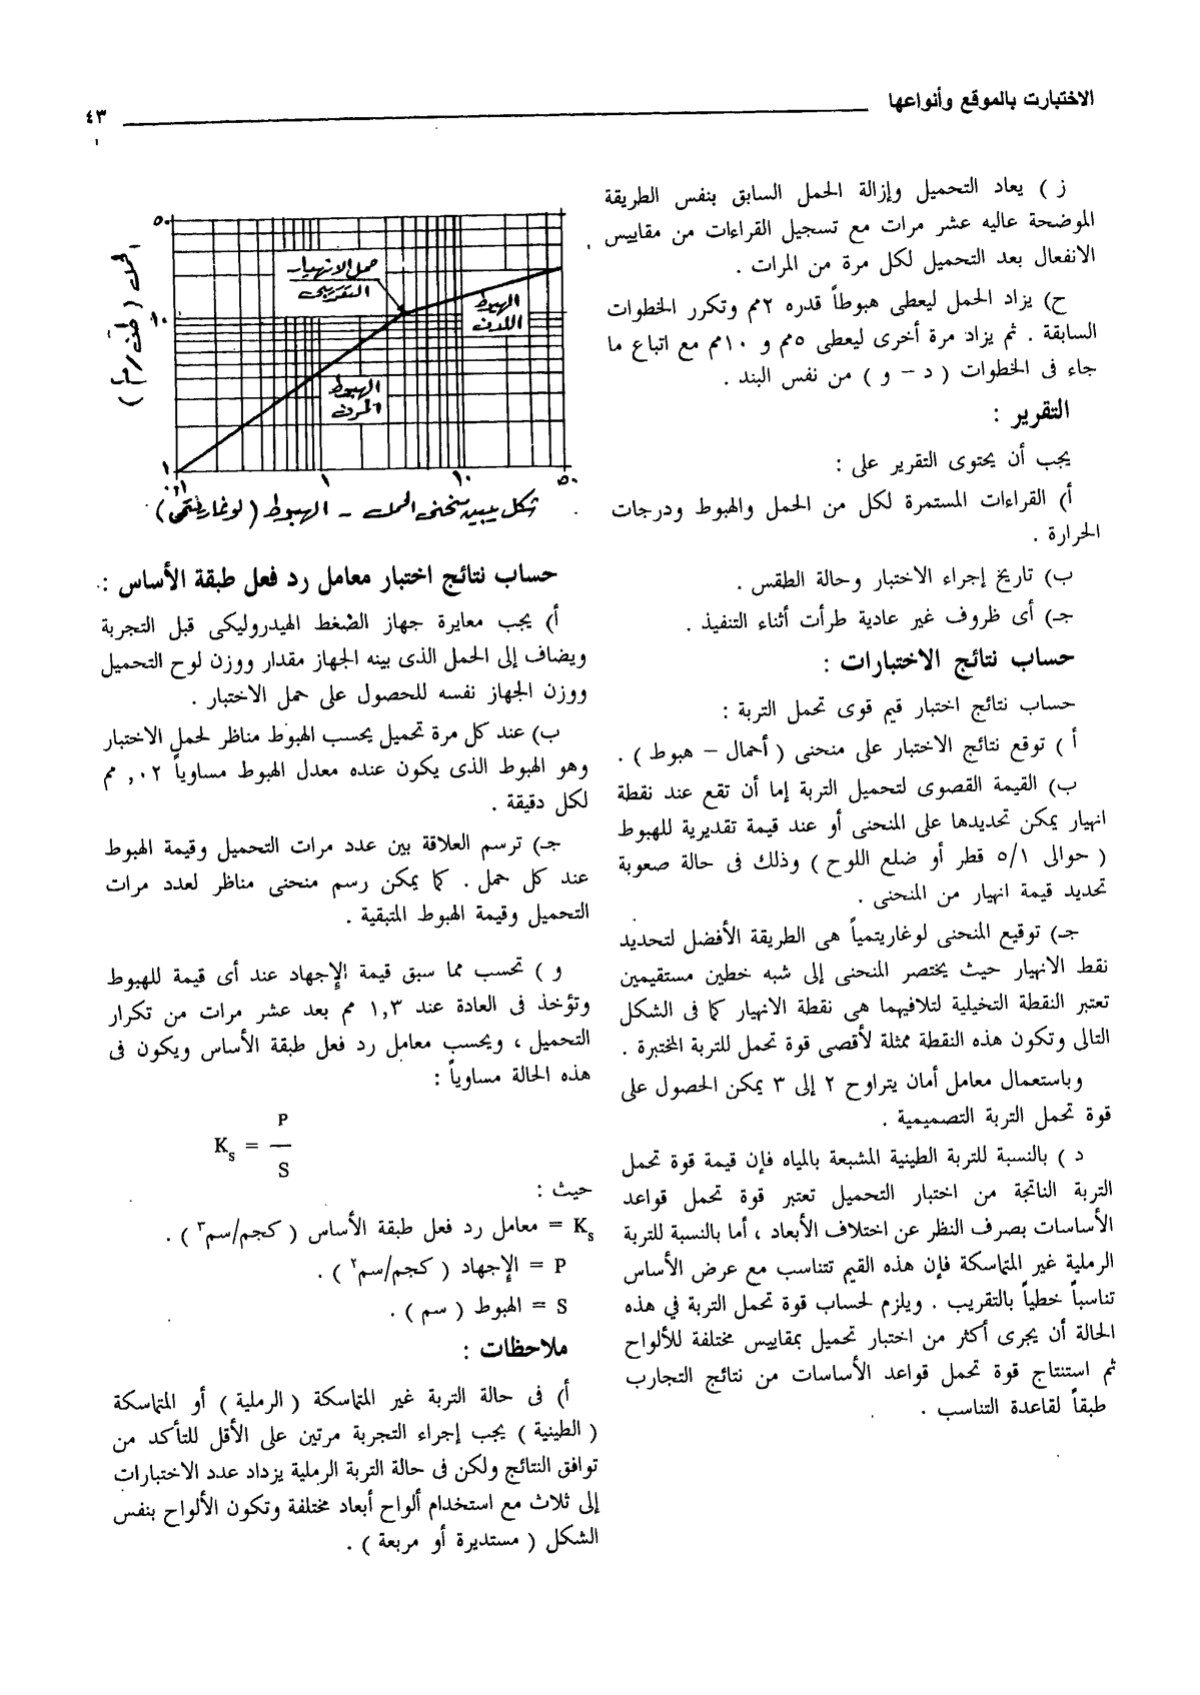 الاختبارت بالموقع وأنواعها
٤٣
ز ) يعاد التحميل وإزالة الحمل السابق بنفس الطريقة
الموضحة عاليه عشر مرات مع تسجيل القراءات من مقاييس
الانفعال بعد التحميل لكل مرة من المرات .
ح) يزاد الحمل ليعطى هبوطاً قدره ٢مم وتكرر الخطوات
السابقة . ثم يزاد مرة أخرى ليعطى ٥مم و ١٠مم مع اتباع ما
جاء فى الخطوات ( د – و ) من نفس البند .
التقرير :
يجب أن يحتوى التقرير على :
أ) القراءات المستمرة لكل من الحمل والهبوط ودرجات
الحرارة .
ب) تاريخ إجراء الاختبار وحالة الطقس .
جـ) أى ظروف غير عادية طرأت أثناء التنفيذ .
حساب نتائج الاختبارات :
حساب نتائج اختبار قيم قوى تحمل التربة :
أ ) توقع نتائج الاختبار على منحنى ( أحمال – هبوط ) .
ب) القيمة القصوى لتحميل التربة إما أن تقع عند نقطة
انهيار يمكن تحديدها على المنحنى أو عند قيمة تقديرية للهبوط
( حوالى ٥/١ قطر أو ضلع اللوح ) وذلك فى حالة صعوبة
تحديد قيمة انهيار من المنحنى .
جـ) توقيع المنحنى لوغاريتمياً هى الطريقة الأفضل لتحديد
نقط الانهيار حيث يختصر المنحنى إلى شبه خطين مستقيمين
تعتبر النقطة التخيلية لتلافيهما هى نقطة الانهيار كما فى الشكل
التالى وتكون هذه النقطة ممثلة لأقصى قوة تحمل للتربة المختبرة .
وباستعمال معامل أمان يتراوح ٢ إلى ٣ يمكن الحصول على
قوة تحمل التربة التصميمية .
د ) بالنسبة للتربة الطينية المشبعة بالمياه فإن قيمة قوة تحمل
التربة الناتجة من اختبار التحميل تعتبر قوة تحمل قواعد
الأساسات بصرف النظر عن اختلاف الأبعاد ، أما بالنسبة للتربة
الرملية غير المتماسكة فإن هذه القيم تتناسب مع عرض الأساس
تناسباً خطياً بالتقريب . ويلزم لحساب قوة تحمل التربة في هذه
الحالة أن يجرى أكثر من اختبار تحميل بمقاييس مختلفة للألواح
ثم استنتاج قوة تحمل قواعد الأساسات من نتائج التجارب
طبقاً لقاعدة التناسب .
٥٠
١٠
١
الحمل ( طن / م٢ )
حمل الانهيار
التقريبى
الهبوط
اللدن
الهبوط
المرن
٠,١
١
١٠
٥٠
شكل يبين منحنى الحمل – الهبوط ( لوغاريتمى )
حساب نتائج اختبار معامل رد فعل طبقة الأساس :
أ) يجب معايرة جهاز الضغط الهيدروليكى قبل التجربة
ويضاف إلى الحمل الذى بينه الجهاز مقدار ووزن لوح التحميل
ووزن الجهاز نفسه للحصول على حمل الاختبار .
ب) عند كل مرة تحميل يحسب الهبوط مناظر لحمل الاختبار
وهو الهبوط الذى يكون عنده معدل الهبوط مساوياً ٠٢, مم
لكل دقيقة .
جـ) ترسم العلاقة بين عدد مرات التحميل وقيمة الهبوط
عند كل حمل . كما يمكن رسم منحنى مناظر لعدد مرات
التحميل وقيمة الهبوط المتبقية .
و ) تحسب مما سبق قيمة الإجهاد عند أى قيمة للهبوط
وتؤخذ فى العادة عند ١,٣ مم بعد عشر مرات من تكرار
التحميل ، ويحسب معامل رد فعل طبقة الأساس ويكون فى
هذه الحالة مساوياً :
P
Ks = —
S
حيث :
Ks = معامل رد فعل طبقة الأساس ( كجم/سم٣ ) .
P = الإجهاد ( كجم/سم٢ ) .
S = الهبوط ( سم ) .
ملاحظات :
أ) فى حالة التربة غير المتماسكة ( الرملية ) أو المتماسكة
( الطينية ) يجب إجراء التجربة مرتين على الأقل للتأكد من
توافق النتائج ولكن فى حالة التربة الرملية يزداد عدد الاختبارات
إلى ثلاث مع استخدام ألواح أبعاد مختلفة وتكون الألواح بنفس
الشكل ( مستديرة أو مربعة ) .